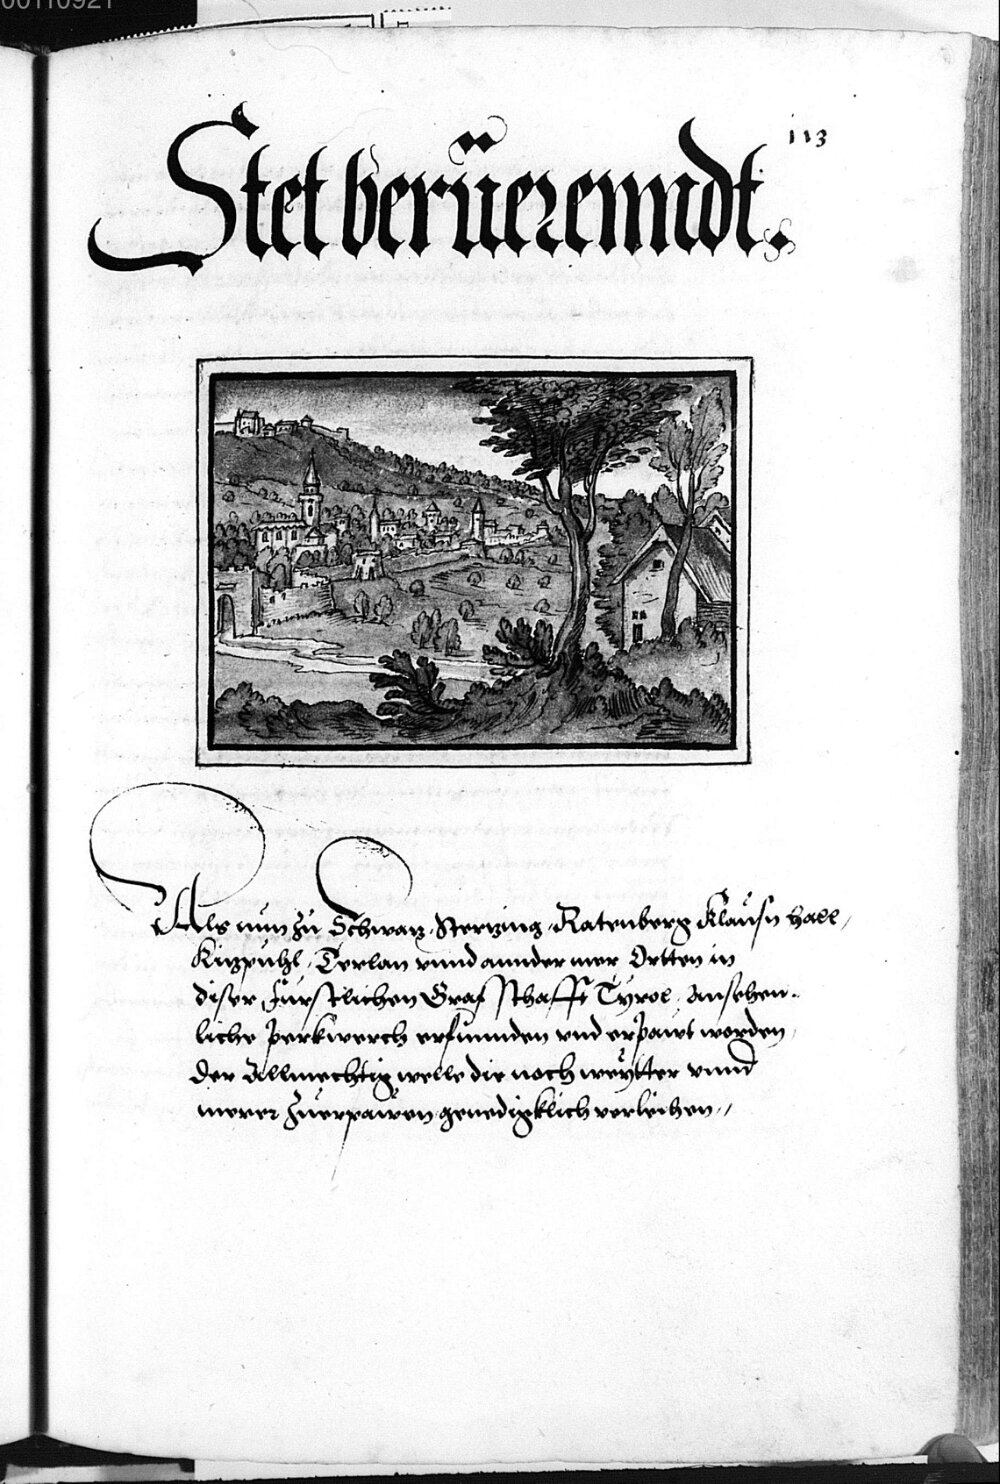 00110921
113
Stet berüerenndt.
Als nun zu Schwaz, Sterzing, Ratenberg Klausn Hall,
Kizpuhl, Terlan vnnd annder mer Ortten in
diser Fürstlichen Graffschafft Tyrol, ansehen-
liche perkwerch erfunnden vnd erpawt worden,
Der Allmechtig welle die noch weytter vnnd
merer zuerpawen genedigklich verleihen,,